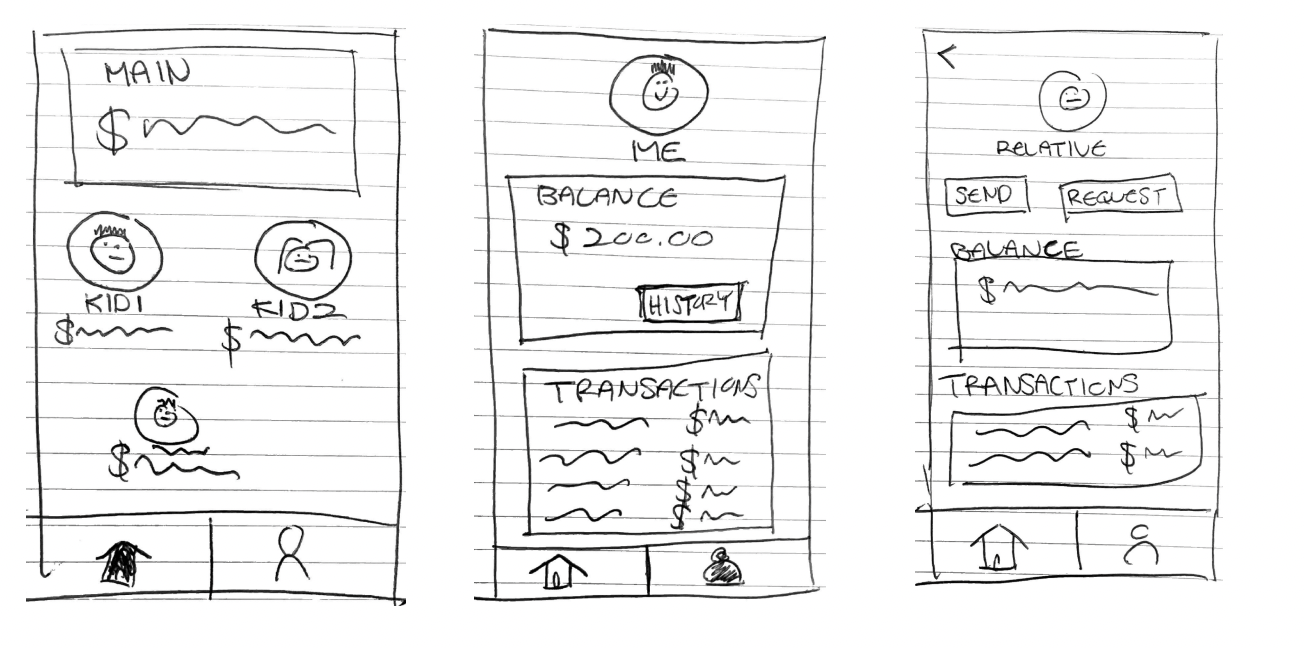 MAIN
$
KID1
$
KID2
$
$
ME
BALANCE
$ 200.00
HISTORY
TRANSACTIONS
$
$
$
$
<
RELATIVE
SEND
REQUEST
BALANCE
$
TRANSACTIONS
$
$